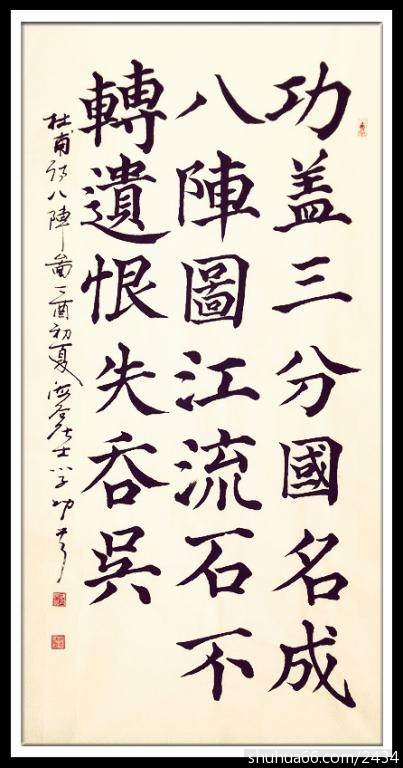 功盖三分國名成
八陣圖江流石不
轉遺恨失吞吳
杜甫詩八陣圖丁酉初夏
shuhua66.com/2434